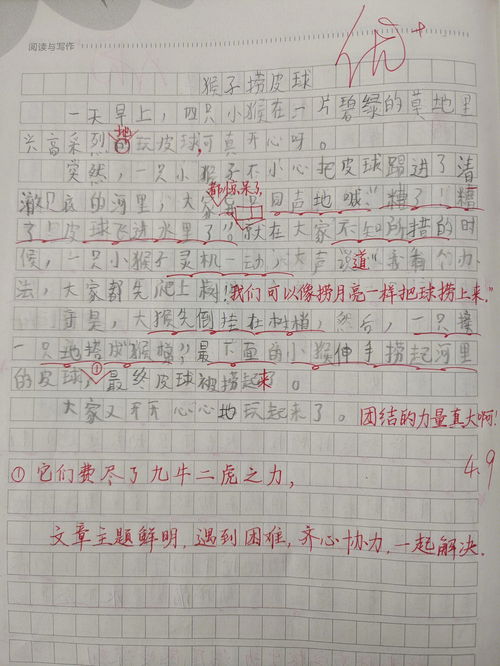 阅读与写作
优+
猴子捞皮球
一天早上，四只小猴在一片碧绿的草地里
兴高采烈地玩皮球，可真开心呀。
突然，一只小猴子不小心把皮球踢进了清
澈见底的河里，大家都惊呆了，同声地喊：“糟了！糟
了！皮球飞进水里了”就在大家不知所措的时
候，一只小猴子灵机一动，大声说道“我有个办
法，大家都先爬上树！我们可以像捞月亮一样把球捞上来。”
于是，大猴先倒挂在树梢，然后，一只接
一只地搭成猴梯，最下面的小猴伸手捞起河里
的皮球，①最终皮球被捞起来了。
大家又开开心心地玩起来了。团结的力量真大啊！
49
①它们费尽了九牛二虎之力，
文章主题鲜明，遇到困难，齐心协力，一起解决.